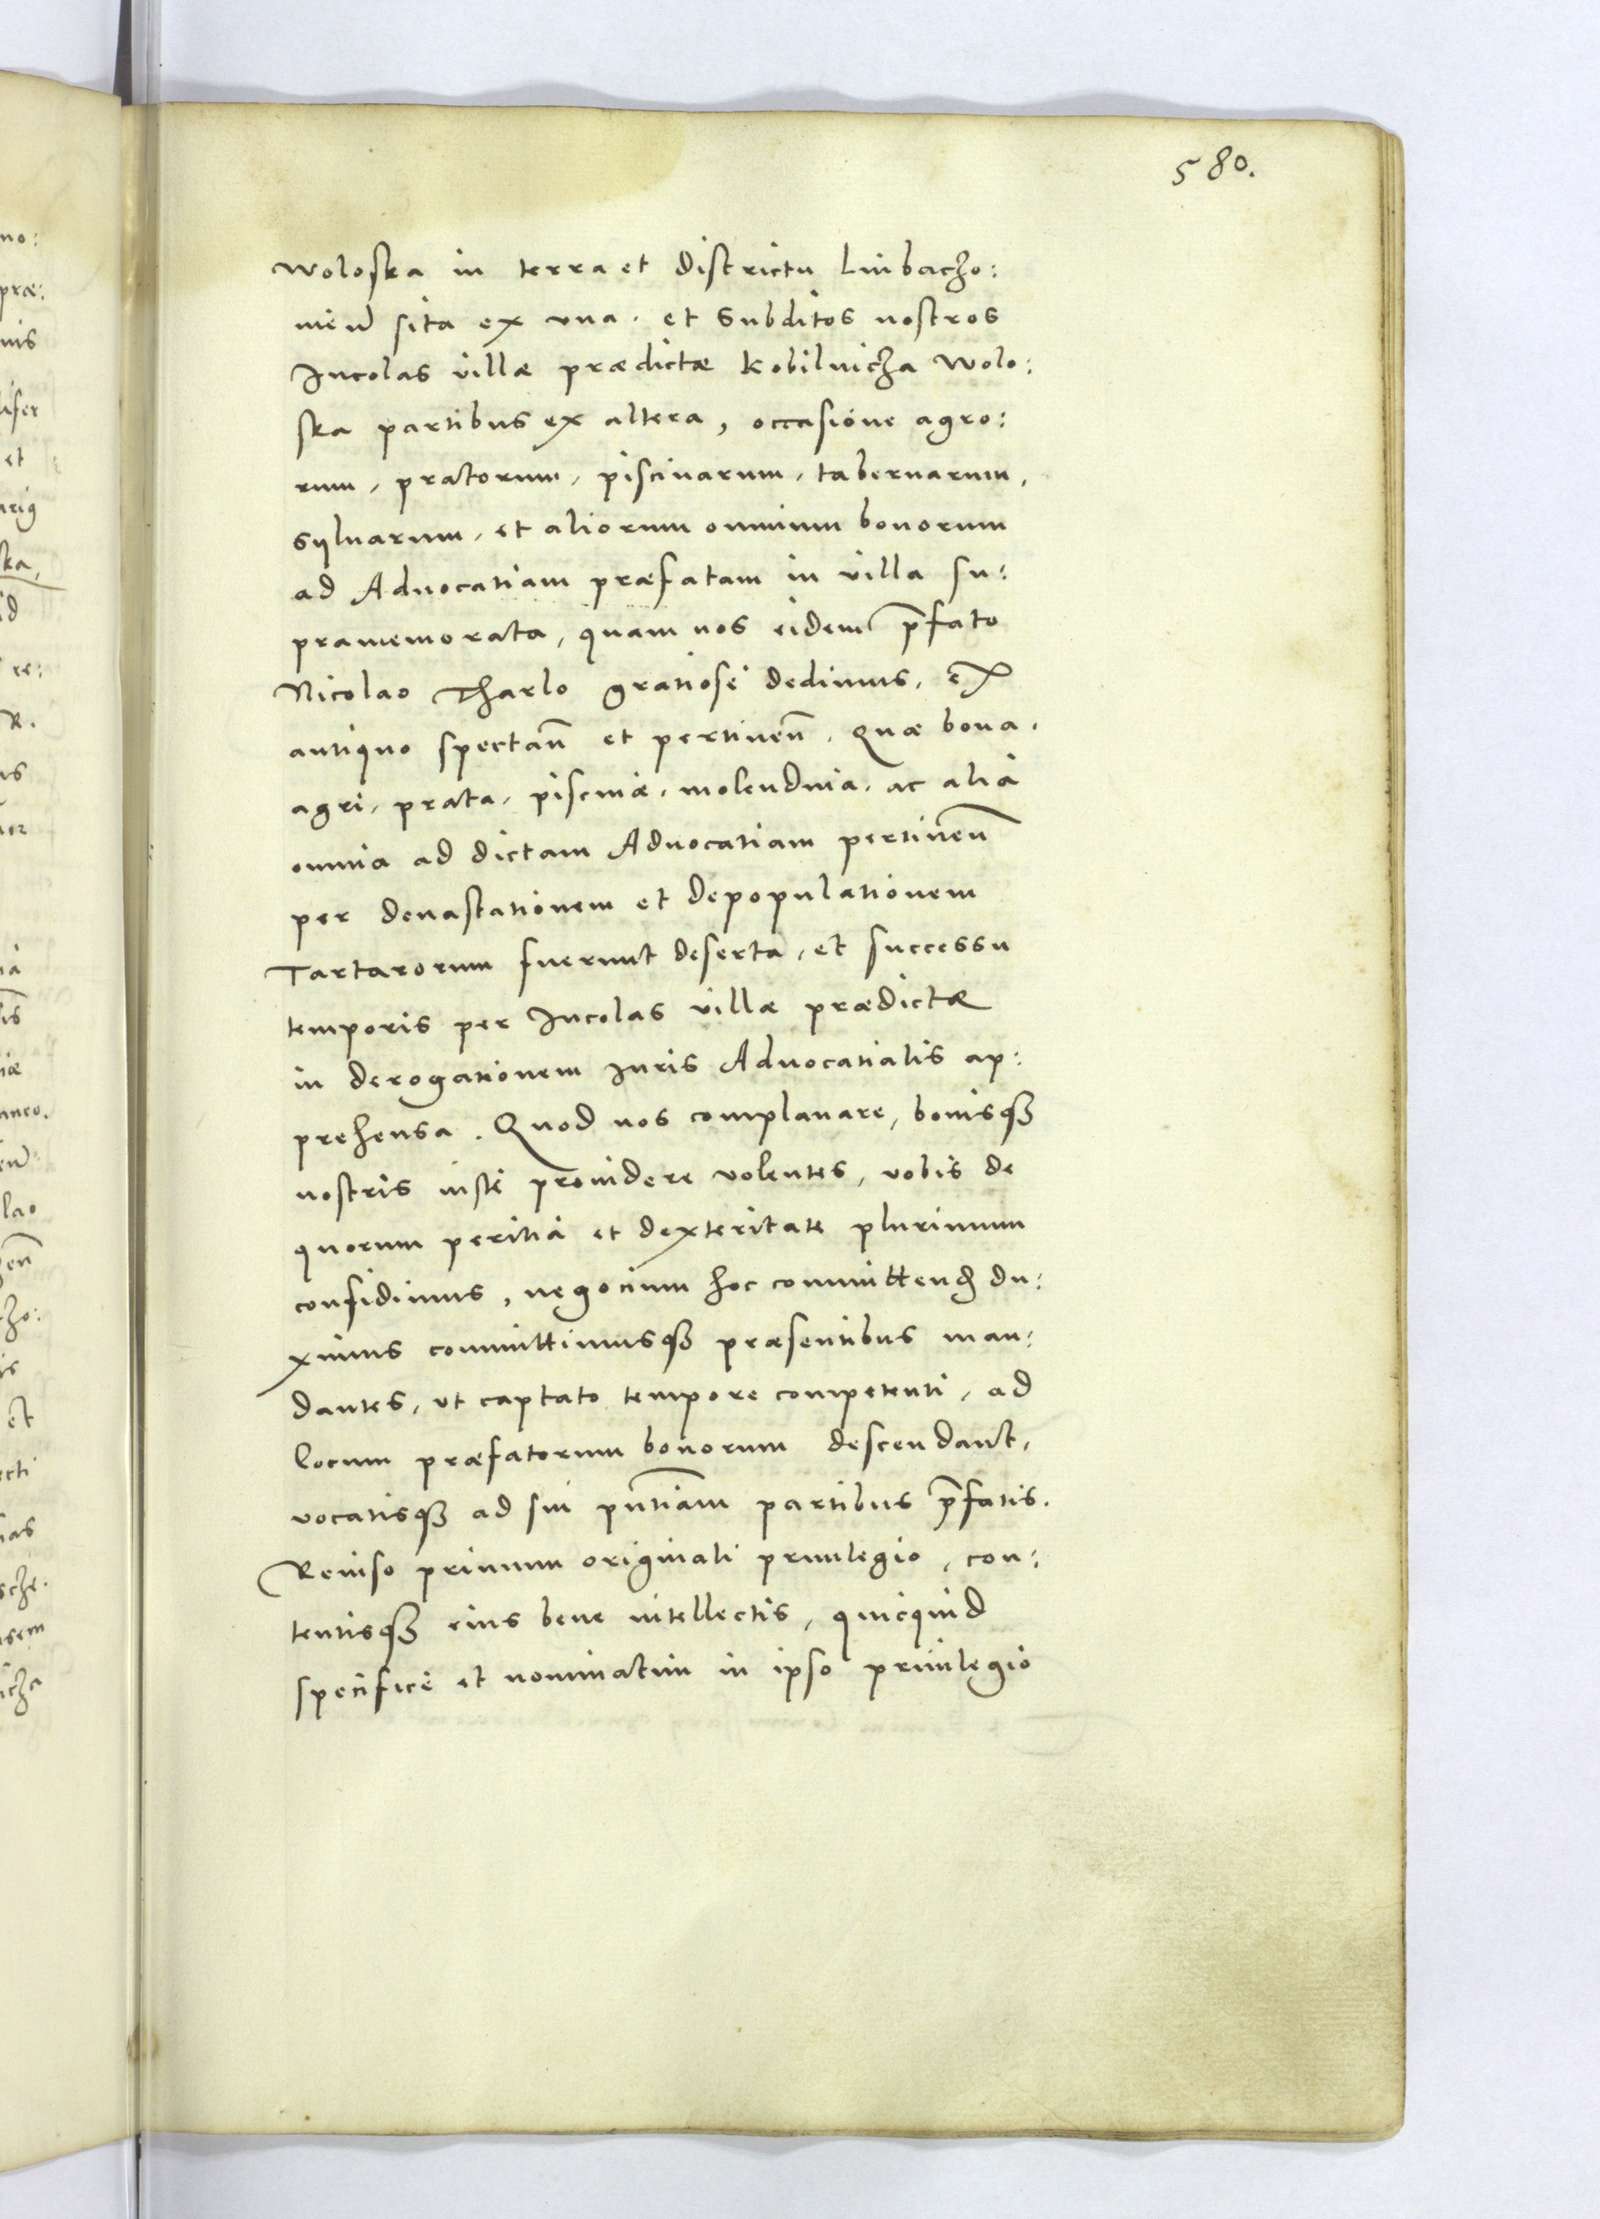 580.
Woloska in terra et districtu Lubaczo:
wieñ sita ex vna. et subditos nostros
Incolas villæ prædictæ Kobilnicza Wolo:
ska partibus ex altera, occasione agro:
rum, pratorum, piscinarum, tabernarum,
syluarum, et aliorum omnium bonorum
ad Aduocatiam præfatam in villa su:
pramemorata, quam nos eidem p̄fato
Nicolao Tharlo gratiosè dedimus, ex
antiquo spectañ et pertineñ. Quæ bona,
agri, prata, piscinæ, molendina, ac alia
omnia ad dictam Aduocatiam pertineñ
per deuastationem et depopulationem
Tartarorum fuerunt deserta, et successu
temporis per Incolas villæ prædictæ
in derogationem iuris Aduocatialis ap:
prehensa. Quod nos complanare, bonisq3
nostris iustè prouidere volentes, vobis de
quorum peritia et dexteritate plurimum
confidimus, negocium hoc committend̃ du:
ximus committimusq3 præsentibus man:
dantes, vt captato tempore competenti, ad
locum præfatorum bonorum descendant,
vocatisq3 ad sui pñtiam partibus p̄fatis.
Reuiso primum originali priuilegio, con:
tentisq3 eius bene intellectis, quicquid
specificè et nominatim in ipso priuilegio